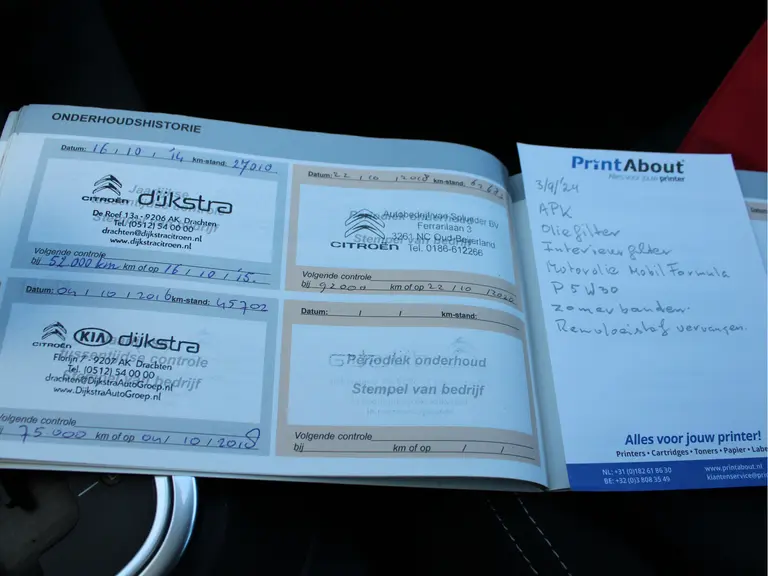 ONDERHOUDSHISTORIE
Datum: 16 / 10 / '14 km-stand: 27010
CITROËN dijkstra
De Roef 13a - 9206 AK, Drachten
Tel. (0512) 54 00 00
drachten@dijkstracitroen.nl
www.dijkstracitroen.nl
Volgende controle
bij 52000 km km of op 16 / 10 / '15.
Datum: 04 / 10 / 2016 km-stand: 45702
CITROËN KIA dijkstra
Tussentijdse controle
Florijn 7 - 9207 AK Drachten
Tel. (0512) 54 00 00
drachten@DijkstraAutoGroep.nl
www.DijkstraAutoGroep.nl
Volgende controle
bij 75000 km of op 04 / 10 / 2018
Datum: 22 / 10 / 2018 km-stand:
Periodiek onderhoud
Stempel van bedrijf
CITROËN
Ferrarilaan 3
3261 NC Oud-Beijerland
Tel. 0186-612266
Volgende controle
bij 92000 km of op 22 / 10 / 2020
Datum: / / km-stand:
Periodiek onderhoud
Stempel van bedrijf
Volgende controle
bij km of op / /
PrintAbout
Alles voor jouw printer
3/9/'24
APK
Oliefilter
Interieurfilter
Motorolie Mobil Formula
P 5W30
zomerbanden.
Remvloeistof vervangen.
Alles voor jouw printer!
Printers • Cartridges • Toners • Papier • Labe
NL: +31 (0)182 61 86 30 www.printabout.nl
BE: +32 (0)3 808 35 49 klantenservice@pri